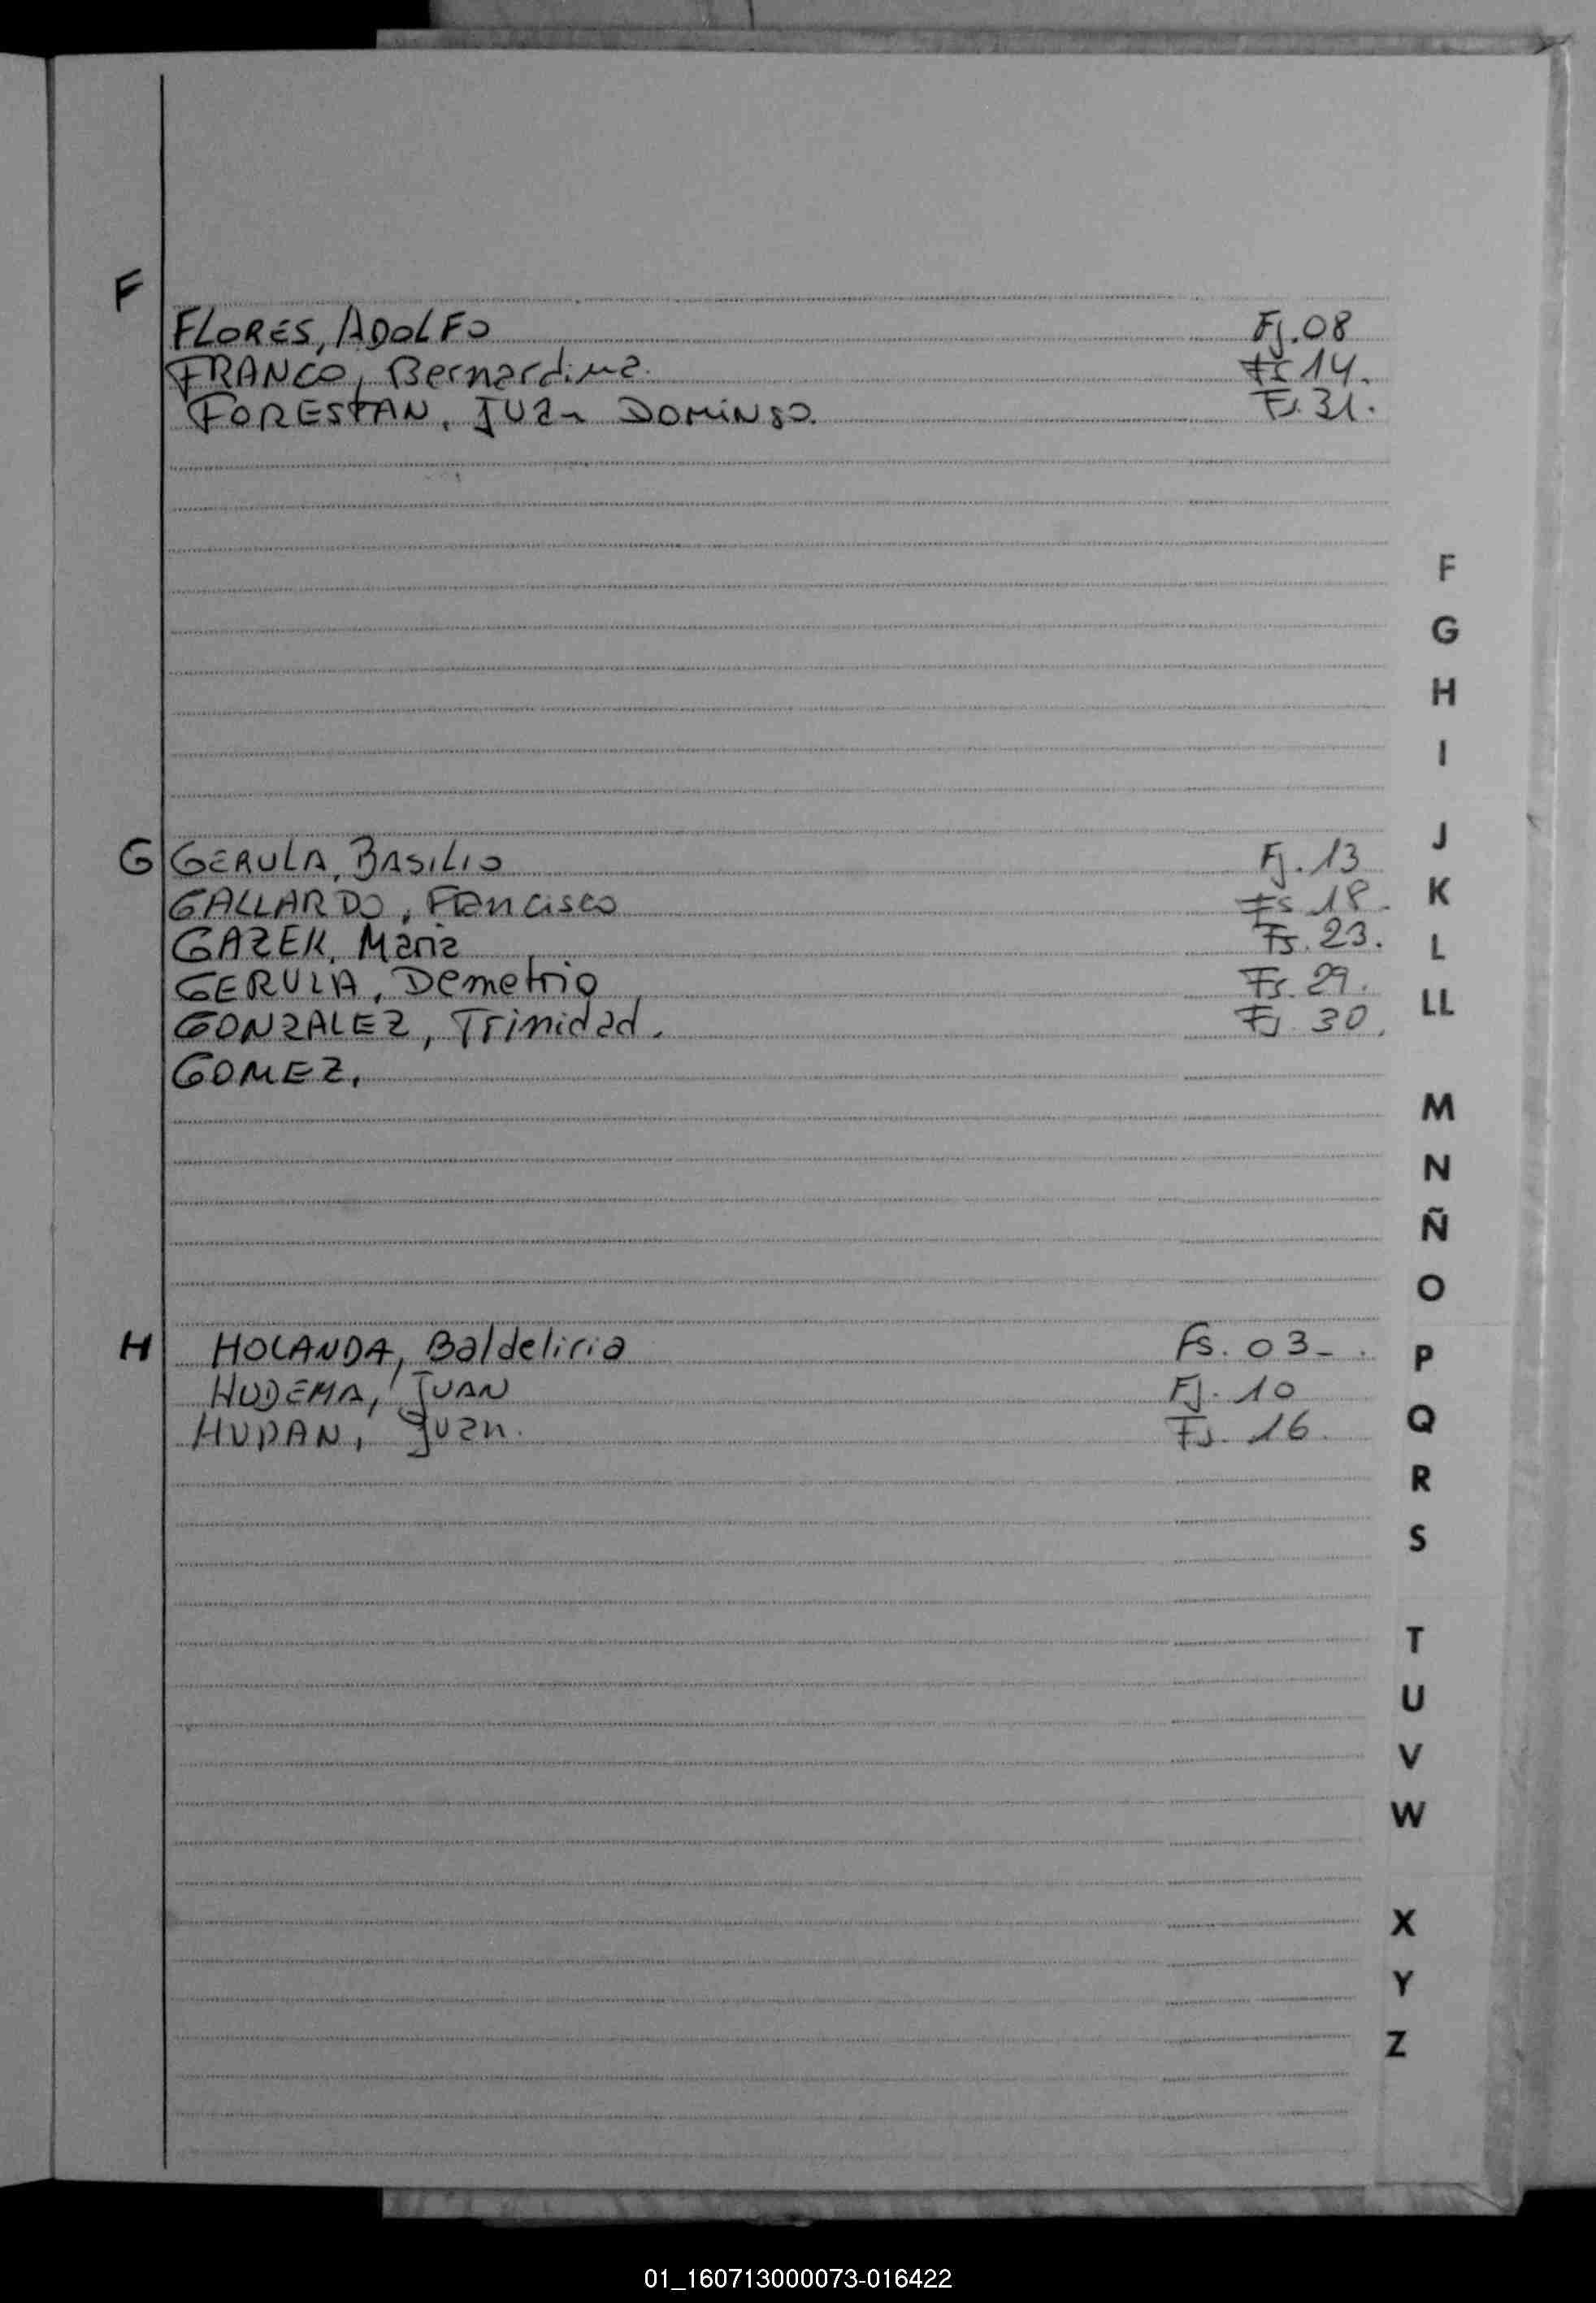 F
FLORES, ADOLFO Fj.08
FRANCO, Bernardina. Fs 14.
FORESTAN, JUan DOMINgo. Fs. 31.
G GERULA, BASILIO Fj. 13
GALLARDO, Francisco Fs 18.
GAZEK, Maria Fs. 23.
GERULA, Demetrio Fs. 29.
GONZALEZ, Trinidad. Fs. 30.
GOMEZ.
H HOLANDA, Baldeliria Fs. 03-.
HUDEMA, JUAN Fj. 10
HUDAN, Juan. Fs. 16.
F
G
H
I
J
K
L
LL
M
N
Ñ
O
P
Q
R
S
T
U
V
W
X
Y
Z
01_160713000073-016422